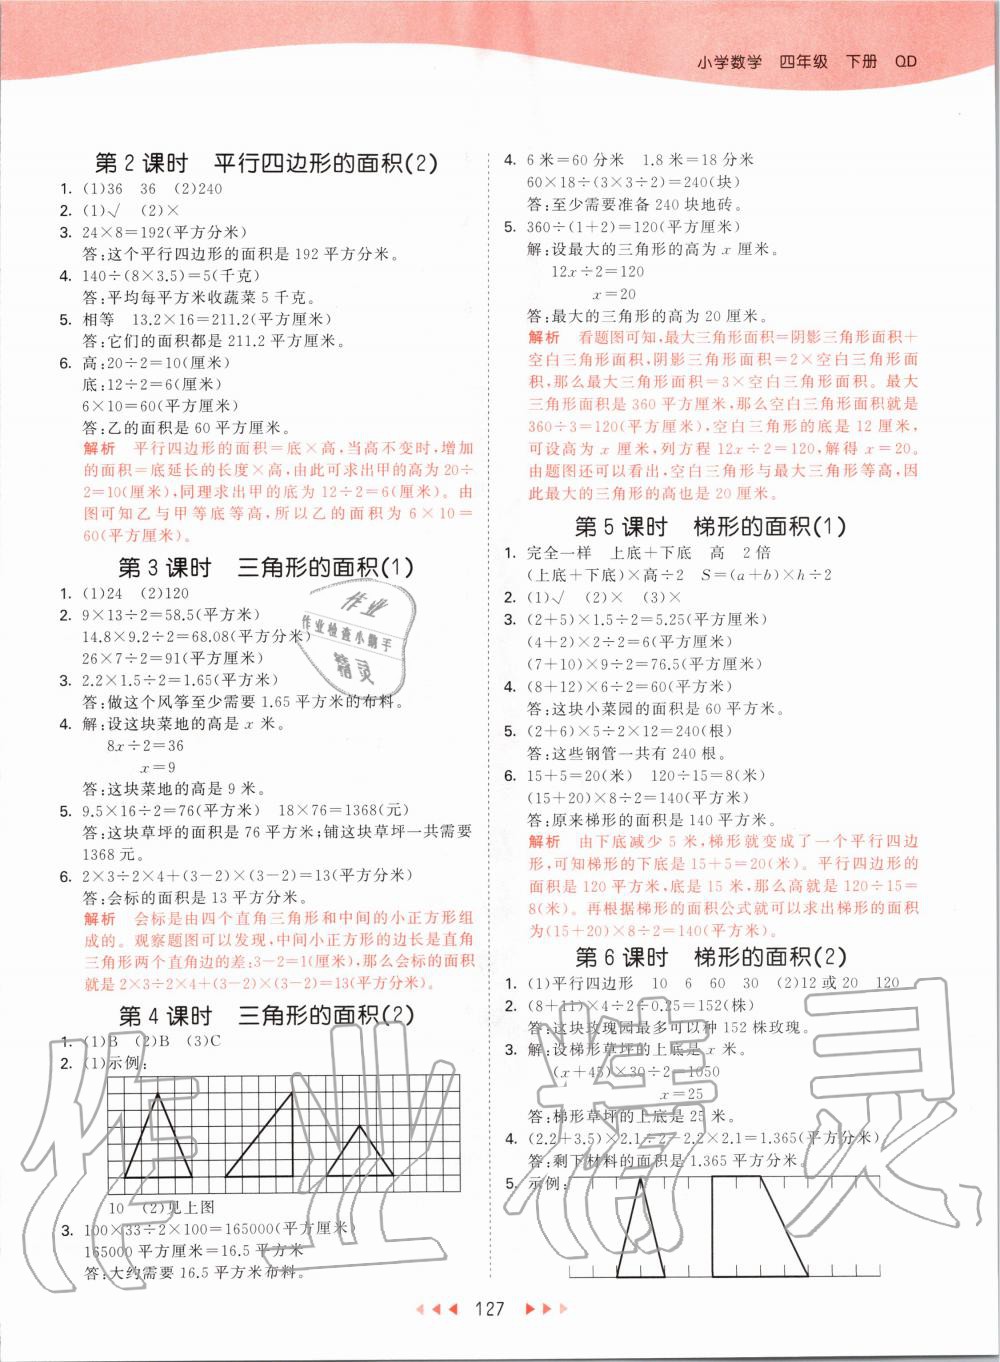 小学数学 四年级 下册 QD
第2课时 平行四边形的面积(2)
1. (1)36 36 (2)240
2. (1)√ (2)×
3. 24×8=192(平方分米)
答:这个平行四边形的面积是 192 平方分米。
4. 140÷(8×3.5)=5(千克)
答:平均每平方米收蔬菜 5 千克。
5. 相等 13.2×16=211.2(平方厘米)
答:它们的面积都是 211.2 平方厘米。
6. 高:20÷2=10(厘米)
底:12÷2=6(厘米)
6×10=60(平方厘米)
答:乙的面积是 60 平方厘米。
解析 平行四边形的面积=底×高,当高不变时,增加
的面积=底延长的长度×高,由此可求出甲的高为 20÷
2=10(厘米),同理求出甲的底为 12÷2=6(厘米)。由
图可知乙与甲等底等高,所以乙的面积为 6×10=
60(平方厘米)。
第3课时 三角形的面积(1)
1. (1)24 (2)120
2. 9×13÷2=58.5(平方米)
14.8×9.2÷2=68.08(平方分米)
26×7÷2=91(平方厘米)
3. 2.2×1.5÷2=1.65(平方米)
答:做这个风筝至少需要 1.65 平方米的布料。
4. 解:设这块菜地的高是 x 米。
8x÷2=36
x=9
答:这块菜地的高是 9 米。
5. 9.5×16÷2=76(平方米) 18×76=1368(元)
答:这块草坪的面积是 76 平方米;铺这块草坪一共需要
1368 元。
6. 2×3÷2×4+(3-2)×(3-2)=13(平方分米)
答:会标的面积是 13 平方分米。
解析 会标是由四个直角三角形和中间的小正方形组
成的。观察题图可以发现,中间小正方形的边长是直角
三角形两个直角边的差:3-2=1(分米),那么会标的面积
就是 2×3÷2×4+(3-2)×(3-2)=13(平方分米)。
第4课时 三角形的面积(2)
1. (1)B (2)B (3)C
2. (1)示例:
10 (2)见上图
3. 100×33÷2×100=165000(平方厘米)
165000 平方厘米=16.5 平方米
答:大约需要 16.5 平方米布料。
4. 6 米=60 分米 1.8 米=18 分米
60×18÷(3×3÷2)=240(块)
答:至少需要准备 240 块地砖。
5. 360÷(1+2)=120(平方厘米)
解:设最大的三角形的高为 x 厘米。
12x÷2=120
x=20
答:最大的三角形的高为 20 厘米。
解析 看题图可知,最大三角形面积=阴影三角形面积+
空白三角形面积,阴影三角形面积=2×空白三角形面
积,那么最大三角形面积=3×空白三角形面积。最大
三角形面积是 360 平方厘米,那么空白三角形面积就是
360÷3=120(平方厘米),空白三角形的底是 12 厘米,
可设高为 x 厘米,列方程 12x÷2=120,解得 x=20。
由题图还可以看出,空白三角形与最大三角形等高,因
此最大的三角形的高也是 20 厘米。
第5课时 梯形的面积(1)
1. 完全一样 上底+下底 高 2 倍
(上底+下底)×高÷2 S=(a+b)×h÷2
2. (1)√ (2)× (3)×
3. (2+5)×1.5÷2=5.25(平方厘米)
(4+2)×2÷2=6(平方厘米)
(7+10)×9÷2=76.5(平方厘米)
4. (8+12)×6÷2=60(平方米)
答:这块小菜园的面积是 60 平方米。
5. (2+6)×5÷2×12=240(根)
答:这些钢管一共有 240 根。
6. 15+5=20(米) 120÷15=8(米)
(15+20)×8÷2=140(平方米)
答:原来梯形的面积是 140 平方米。
解析 由下底减少 5 米,梯形就变成了一个平行四边
形,可知梯形的下底是 15+5=20(米)。平行四边形的
面积是 120 平方米,底是 15 米,那么高就是 120÷15=
8(米)。再根据梯形的面积公式就可以求出梯形的面积
为(15+20)×8÷2=140(平方米)。
第6课时 梯形的面积(2)
1. (1)平行四边形 10 6 60 30 (2)12 或 20 120
2. (8+11)×4÷2÷0.25=152(株)
答:这块玫瑰园最多可以种 152 株玫瑰。
3. 解:设梯形草坪的上底是 x 米。
(x+45)×30÷2=1050
x=25
答:梯形草坪的上底是 25 米。
4. (2.2+3.5)×2.1÷2-2.2×2.1=1.365(平方分米)
答:剩下材料的面积是 1.365 平方分米。
5. 示例:
127
作业
作业检查小助手
精灵
作业精灵